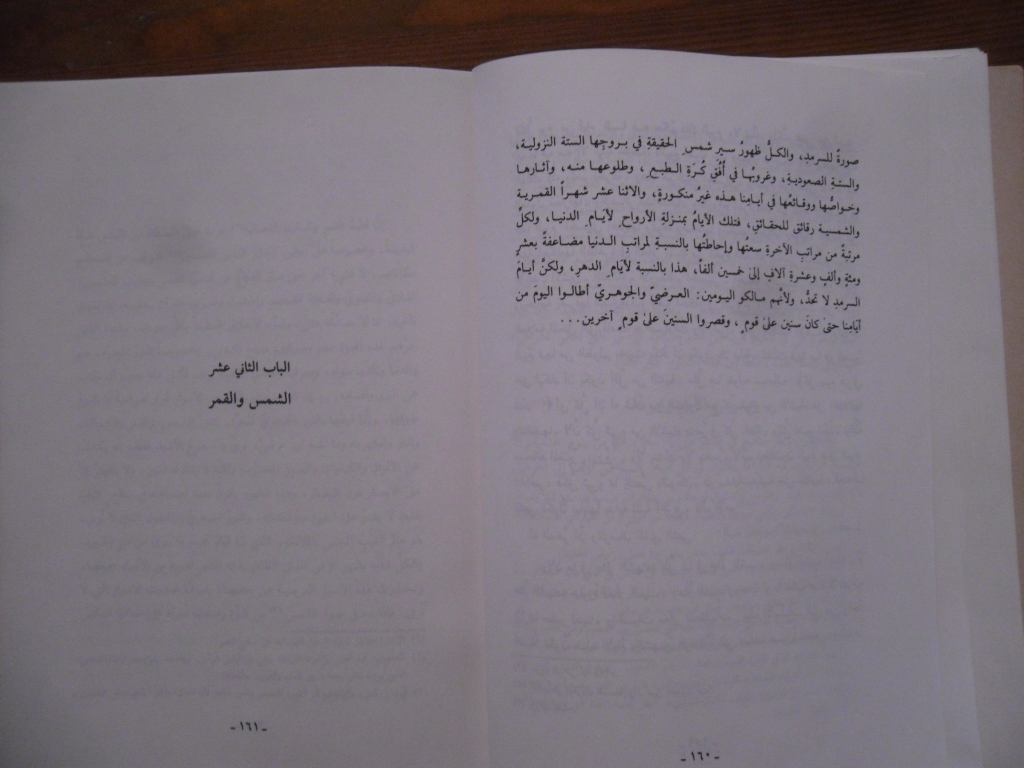 صورةٌ للسرمدِ، والكلُّ ظهورُ سيرِ شمسِ الحقيقةِ في بروجِها الستة النزولية،
والستةِ الصعودية، وغروبُها في أُفُقِ كُرَةِ الطبعِ، وطلوعها منه، وآثارها
وخواصُّها ووقائعُها في أيامِنا هذه غيرُ منكورةٍ، والاثنا عشر شهراً القمرية
والشمسية رقائق للحقائقِ، فتلك الأيامُ بمنزلةِ الأرواحِ لأيامِ الدنيا، ولكلِّ
مرتبةٌ من مراتبِ الآخرةِ سعتُها وإحاطتُها بالنسبةِ لمراتبِ الدنيا مضاعفةٌ بعشرٍ
ومئةٍ وألفٍ وعشرةِ آلافٍ إلىٰ خمسين ألفاً، هذا بالنسبة لأيامِ الدهرِ، ولكنَّ أيامَ
السرمدِ لا تُحدُّ، ولأنهم مالكو اليومين: العرضيّ والجوهريّ أطالوا اليومَ من
أيامِنا حتىٰ كانَ سنينَ علىٰ قومٍ، وقصروا السنينَ علىٰ قومٍ آخرين...
- ١٦٠ -
الباب الثاني عشر
الشمس والقمر
- ١٦١ -